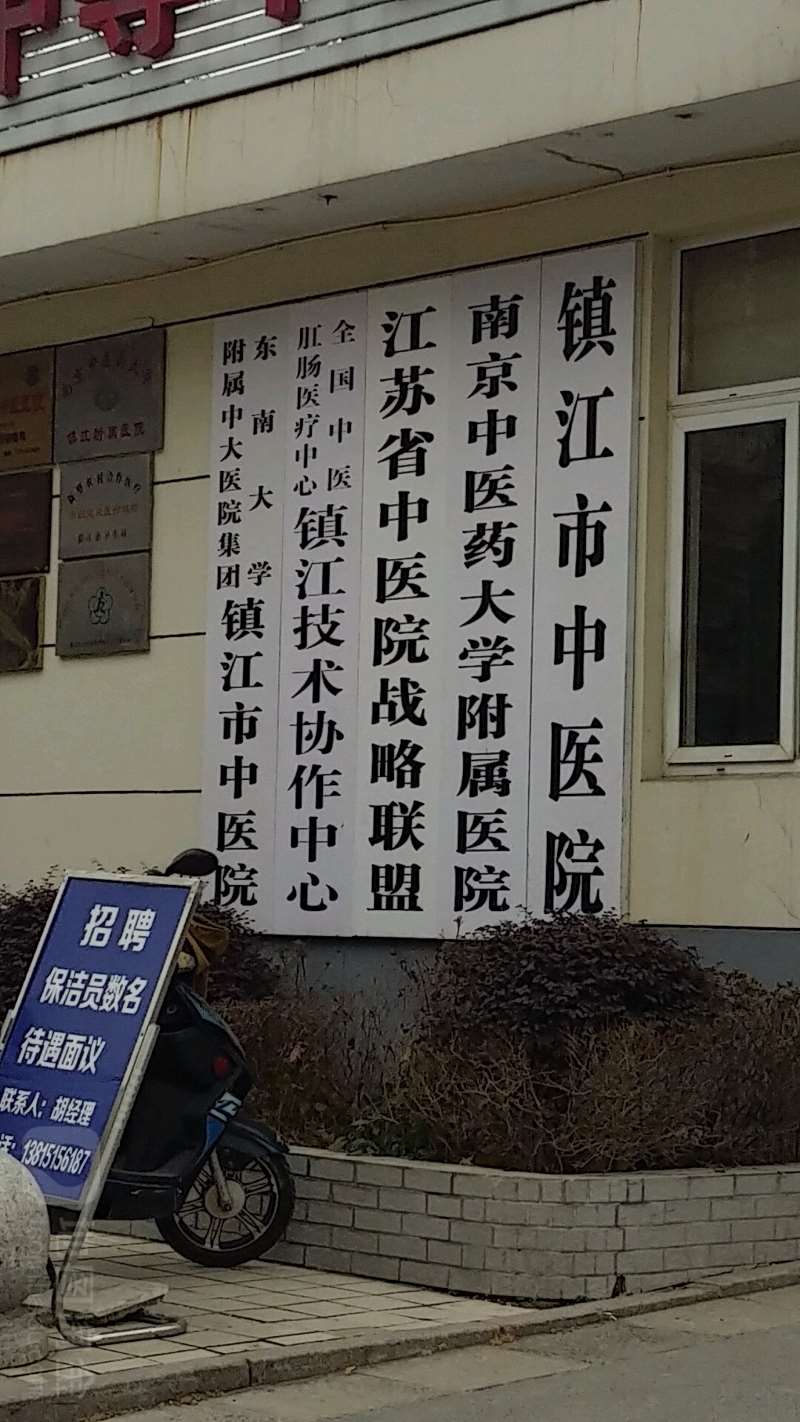 镇江市中医院
南京中医药大学附属医院
江苏省中医院战略联盟
全国中医
肛肠医疗中心
镇江技术协作中心
东南大学
附属中大医院集团
镇江市中医院
镇江附属医院
招聘
保洁员数名
待遇面议
联系人：胡经理
话：13815156187